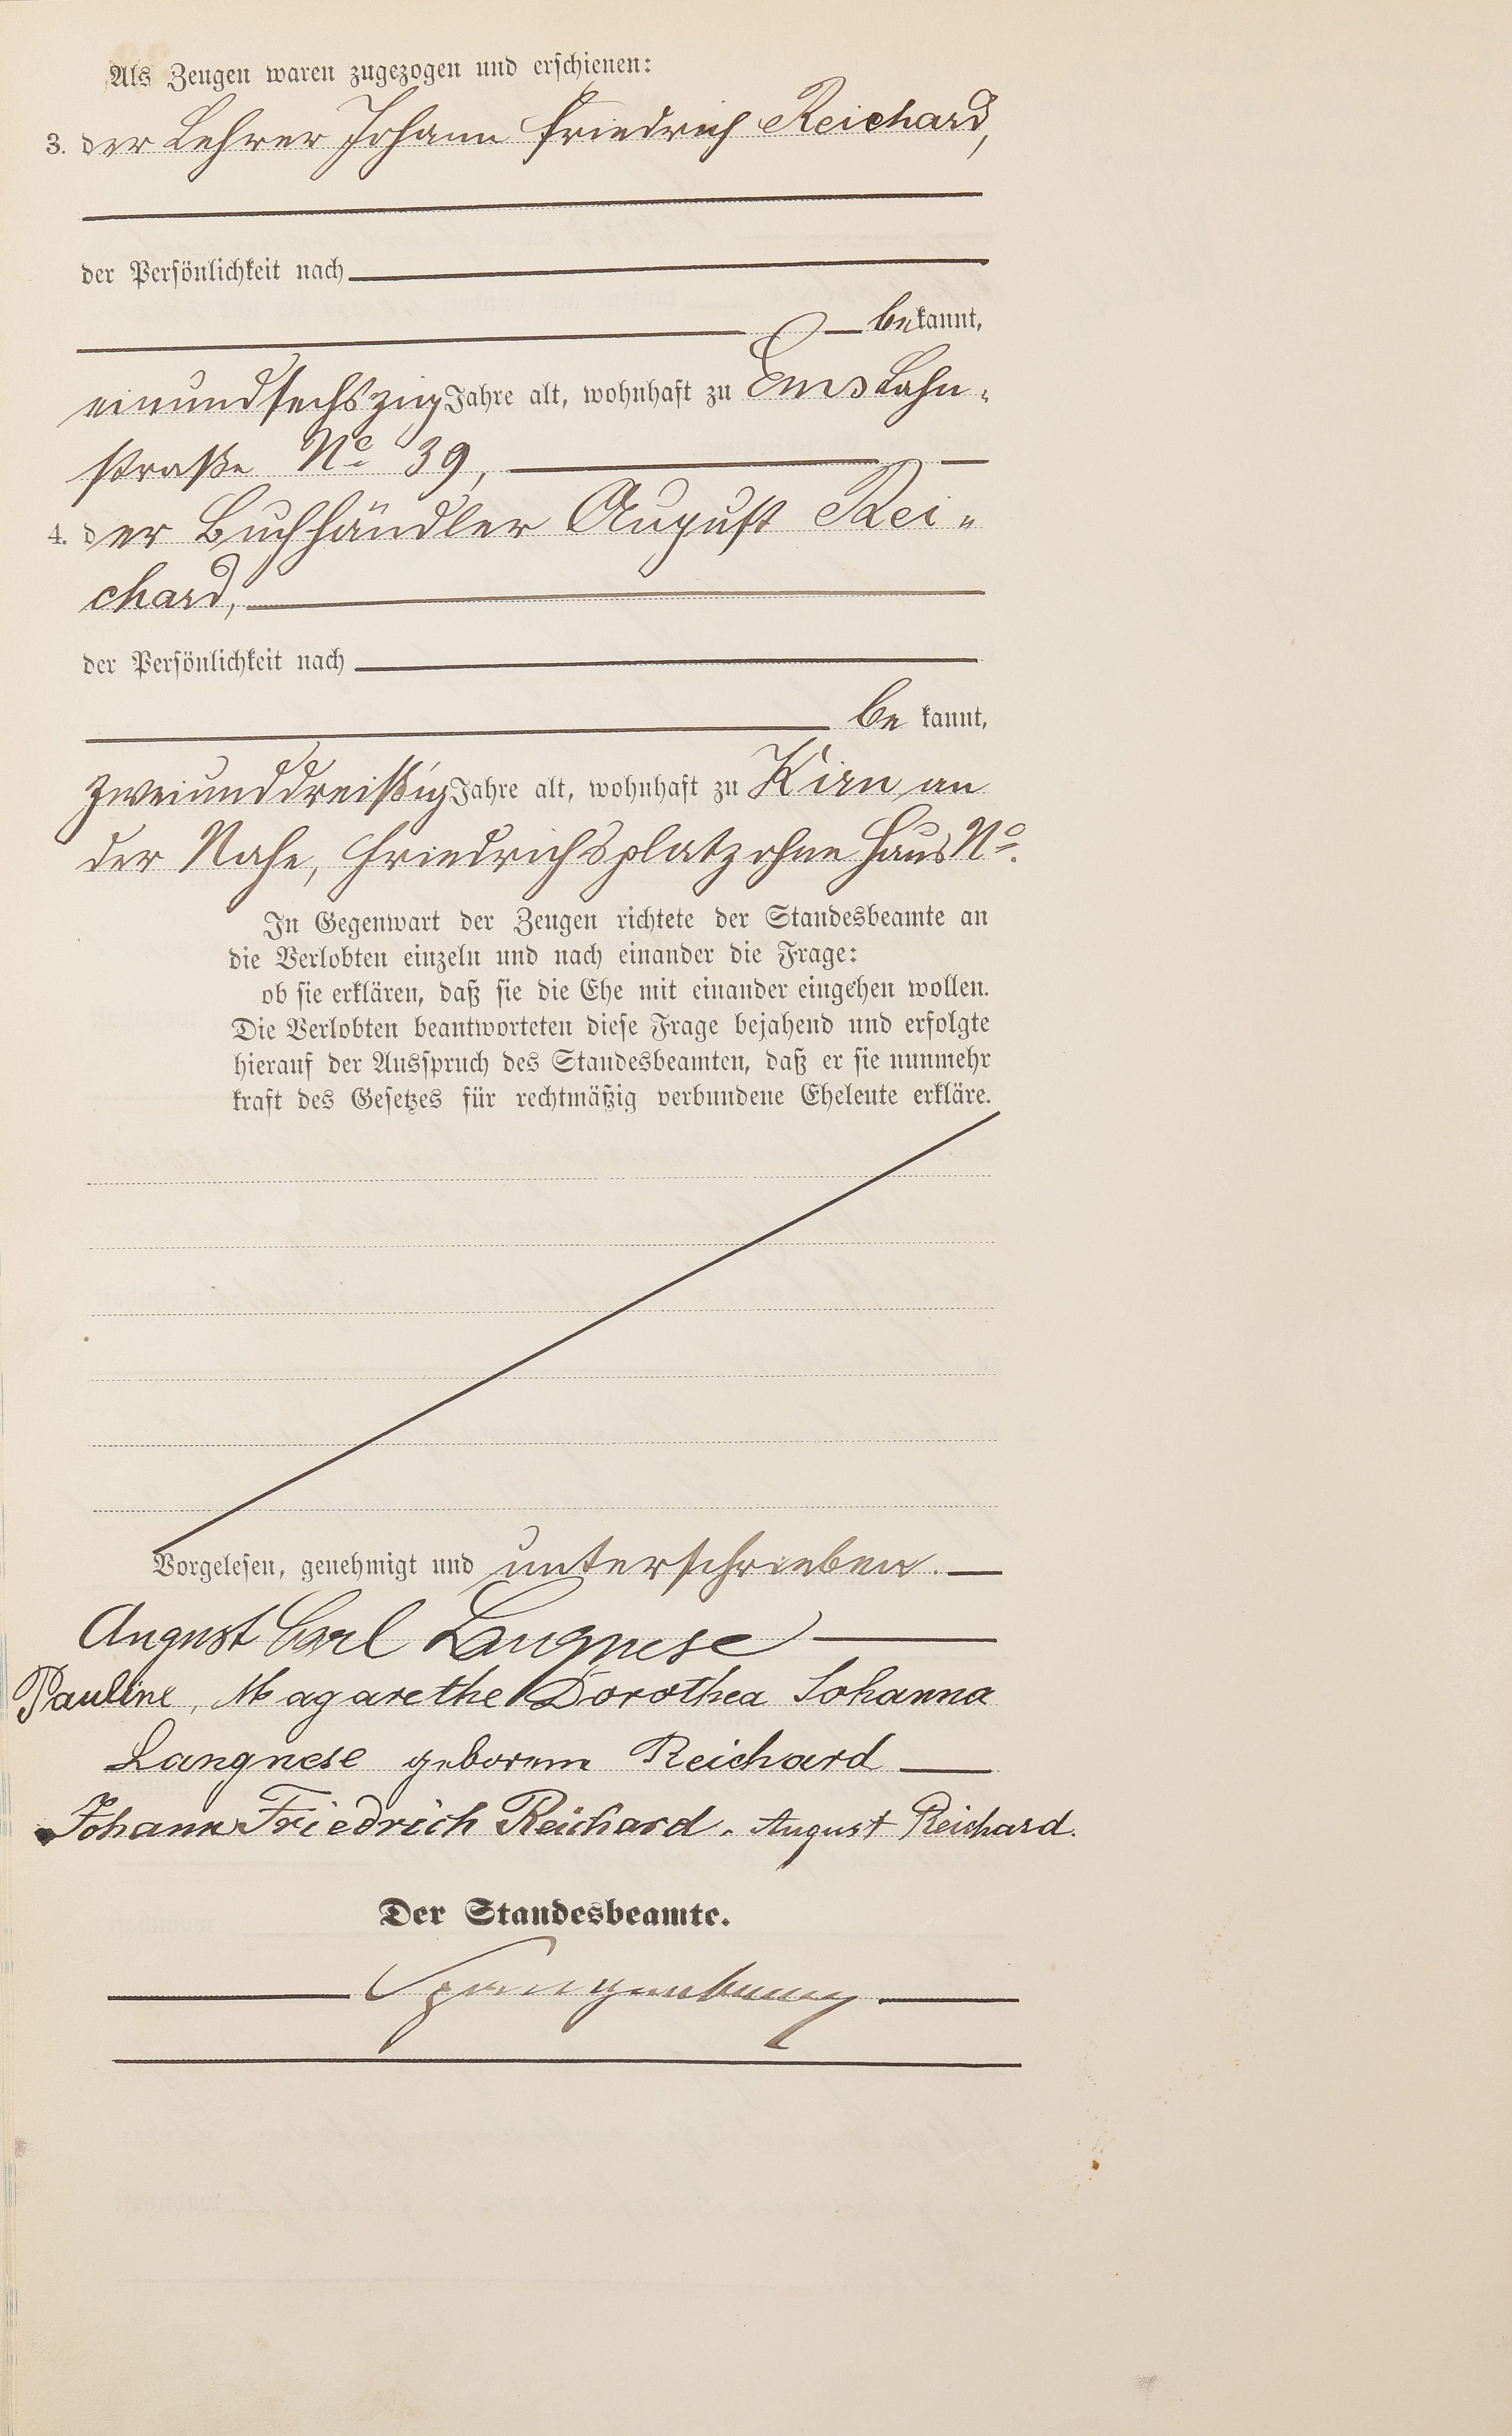 Als Zeugen waren zugezogen und erschienen:
3. der Lehrer Johann Friedrich Reichard,
der Persönlichkeit nach
bekannt,
einundsechszig Jahre alt, wohnhaft zu Ems Lahn-
straße No 39,
4. der Buchhändler August Rei-
chard,
der Persönlichkeit nach
be kannt,
zweiunddreißig Jahre alt, wohnhaft zu Kirn an
der Nahe, Friedrichsplatz ohne Haus No.
In Gegenwart der Zeugen richtete der Standesbeamte an
die Verlobten einzeln und nach einander die Frage:
ob sie erklären, daß sie die Ehe mit einander eingehen wollen.
Die Verlobten beantworteten diese Frage bejahend und erfolgte
hierauf der Ausspruch des Standesbeamten, daß er sie nunmehr
kraft des Gesetzes für rechtmäßig verbundene Eheleute erkläre.
Vorgelesen, genehmigt und unterschrieben.
August Carl Langnese
Pauline, Magarethe Dorothea Johanna
Langnese geborene Reichard
Johann Friedrich Reichard. August Reichard.
Der Standesbeamte.